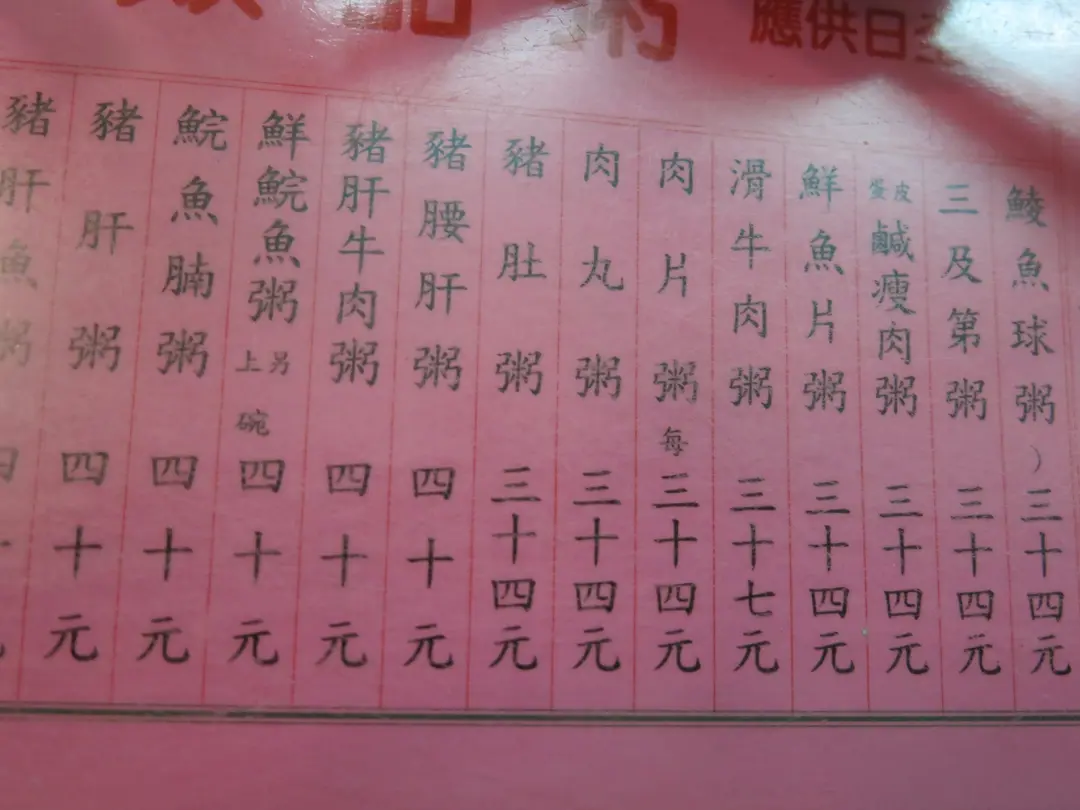 全日供應
鯪魚球粥）三十四元
三及第粥三十四元
皮蛋鹹瘦肉粥三十四元
鮮魚片粥三十四元
滑牛肉粥三十七元
肉片粥每三十四元
肉丸粥三十四元
豬肚粥三十四元
豬腰肝粥四十元
豬肝牛肉粥四十元
鮮鯇魚粥另上碗四十元
鯇魚腩粥四十元
豬肝粥四十元
豬肝魚粥四